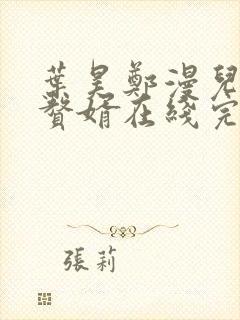 葉昊鄭漫兒
贅婿在綫完
張莉